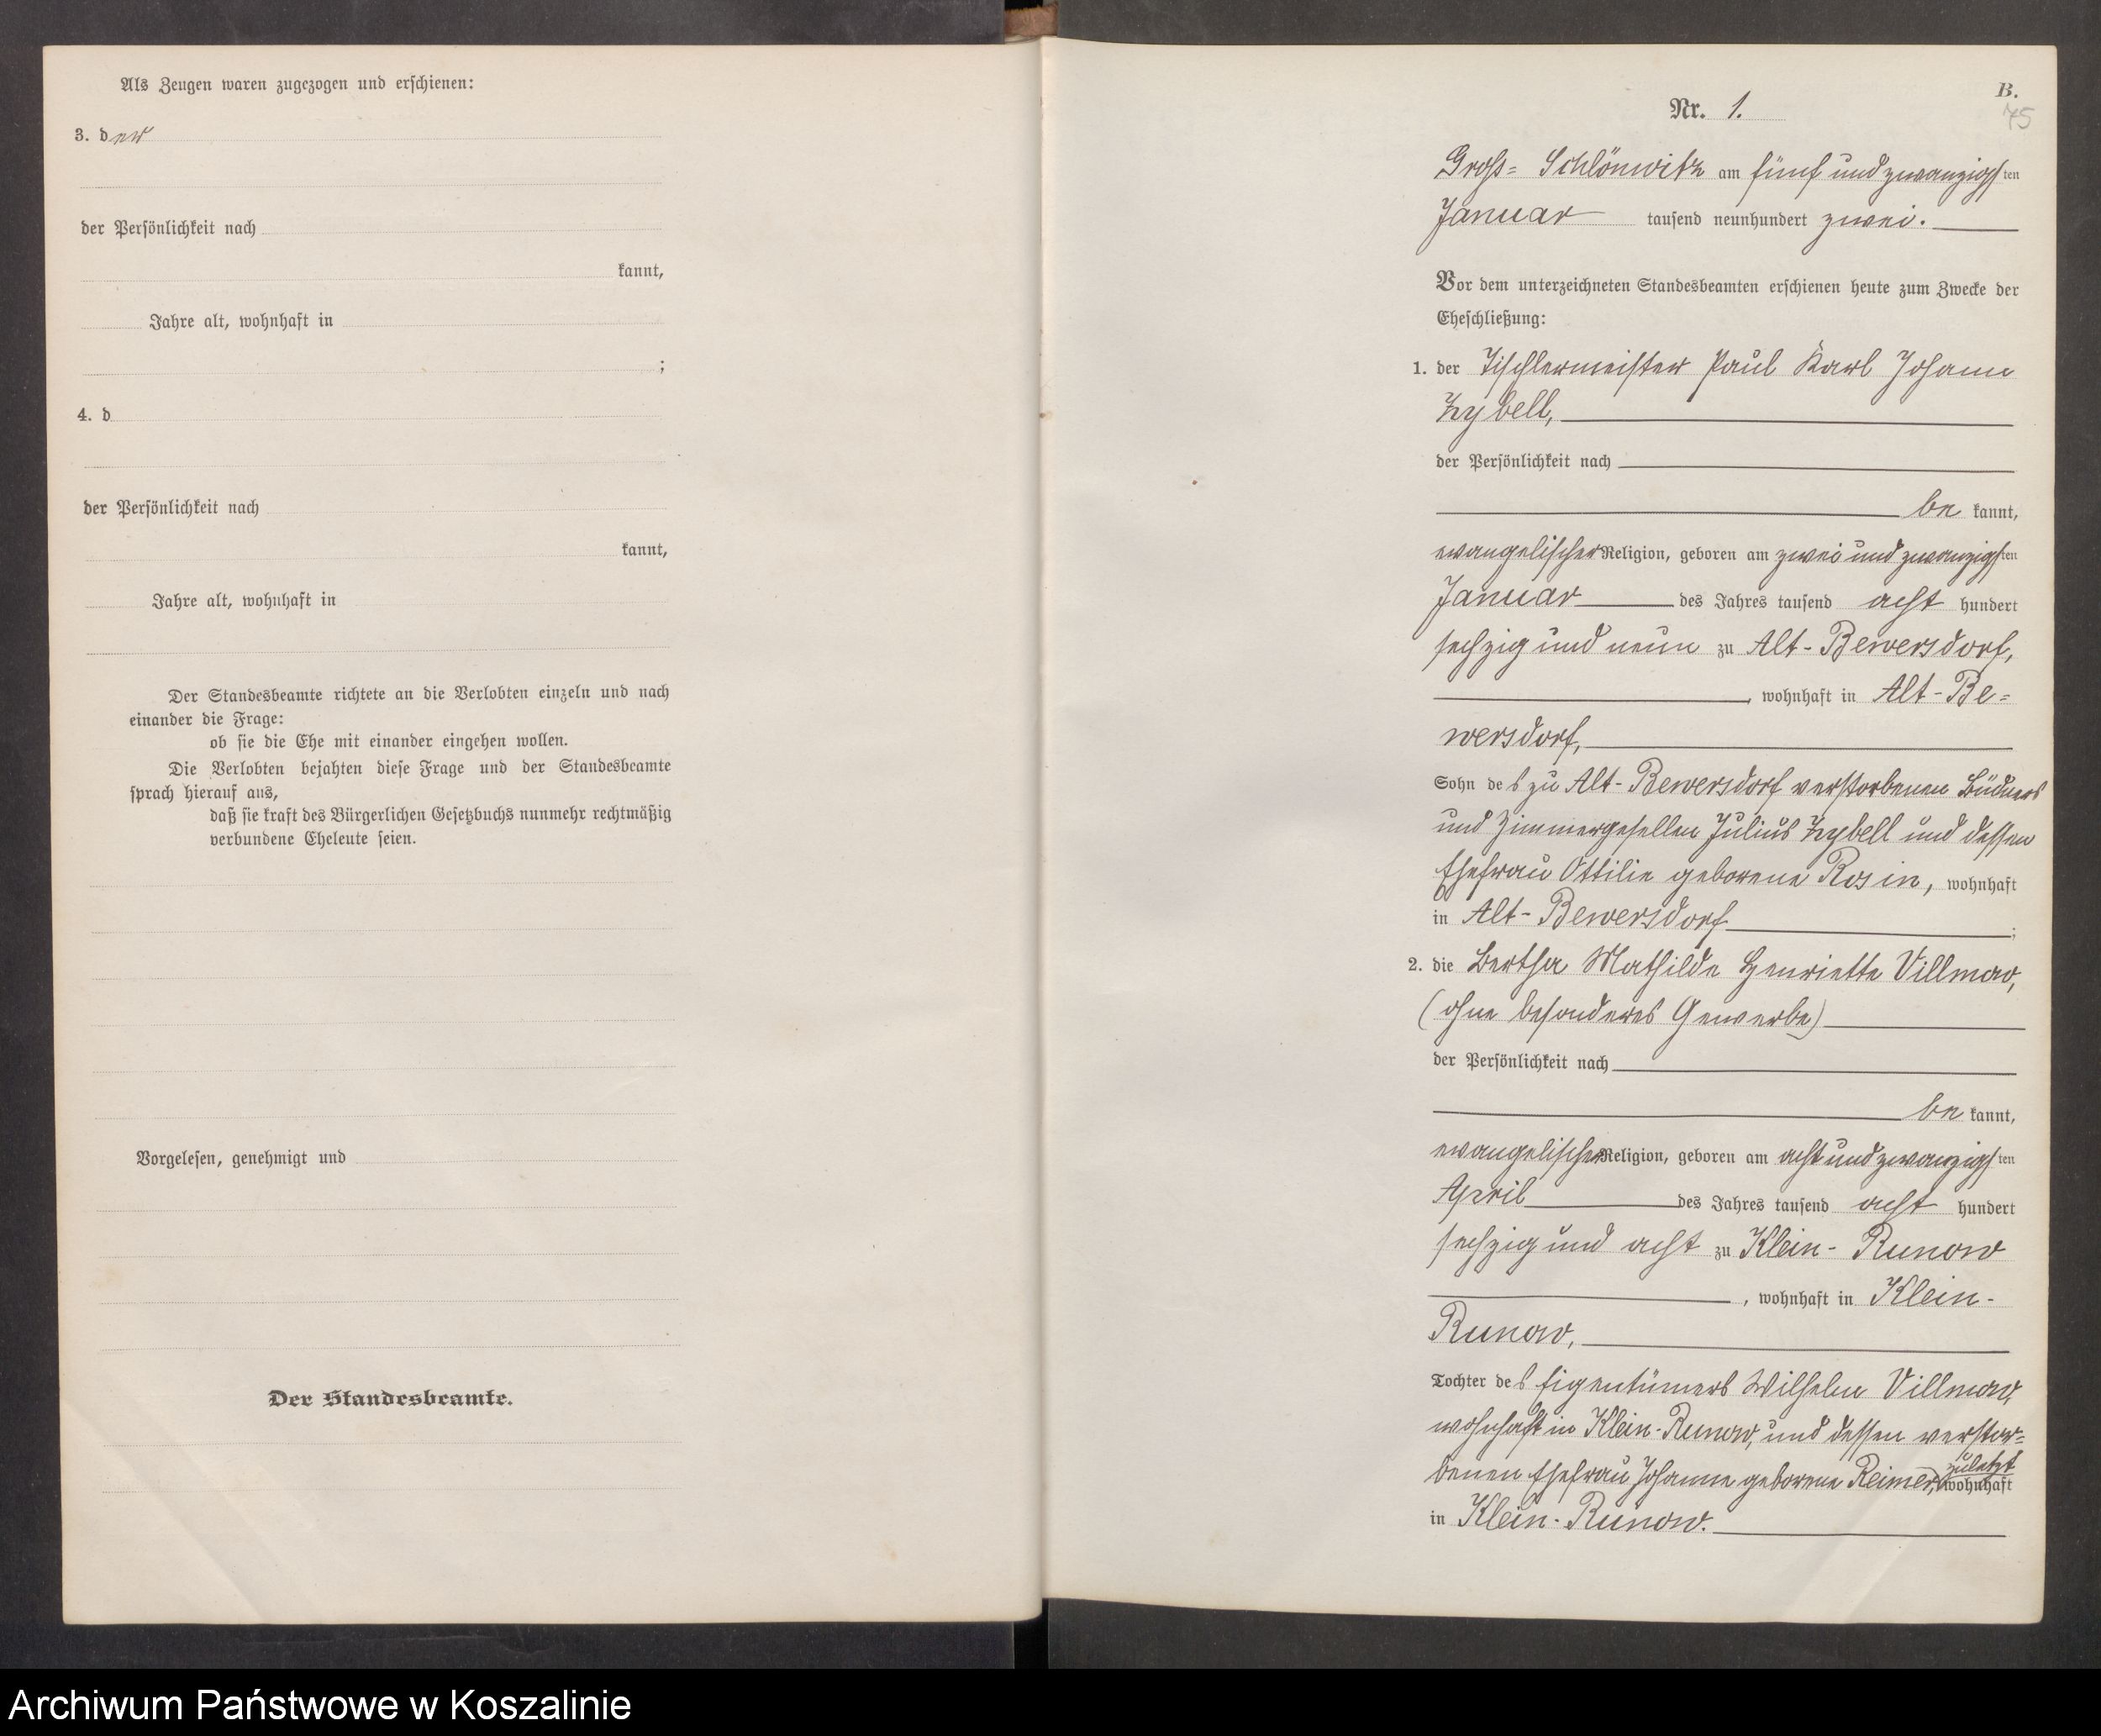 Als Zeugen waren zugezogen und erschienen:
3. der
der Persönlichkeit nach
kannt,
Jahre alt, wohnhaft in
;
4. d
der Persönlichkeit nach
kannt,
Jahre alt, wohnhaft in
Der Standesbeamte richtete an die Verlobten einzeln und nach
einander die Frage:
ob sie die Ehe mit einander eingehen wollen.
Die Verlobten bejahten diese Frage und der Standesbeamte
sprach hierauf aus,
daß sie kraft des Bürgerlichen Gesetzbuchs nunmehr rechtmäßig
verbundene Eheleute seien.
Vorgelesen, genehmigt und
Der Standesbeamte.
B.
75
Nr. 1.
Gross= Schlönwitz am fünf und zwanzigsten
Januar tausend neunhundert zwei.
Vor dem unterzeichneten Standesbeamten erschienen heute zum Zwecke der
Eheschließung:
1. der Tischlermeister Paul Karl Johann
Zybell,
der Persönlichkeit nach
be kannt,
evangelischer Religion, geboren am zwei und zwanzigsten
Januar des Jahres tausend acht hundert
sechzig und neun zu Alt-Bewersdorf,
, wohnhaft in Alt-Be=
wersdorf,
Sohn des zu Alt-Bewersdorf verstorbenen Büdners
und Zimmergesellen Julius Zybell und dessen
Ehefrau Ottilie geborene Rosin, wohnhaft
in Alt-Bewersdorf ;
2. die Bertha Mathilde Henriette Villmow,
(ohne besonderes Gewerbe)
der Persönlichkeit nach
be kannt,
evangelischer Religion, geboren am acht und zwanzigsten
April des Jahres tausend acht hundert
sechzig und acht zu Klein-Runow
, wohnhaft in Klein-
Runow,
Tochter des Eigentümers Wilhelm Villmow,
wohnhaft in Klein-Runow, und dessen verstor=
benen Ehefrau Johanne geborene Reimer, zuletzt wohnhaft
in Klein-Runow.
Archiwum Państwowe w Koszalinie